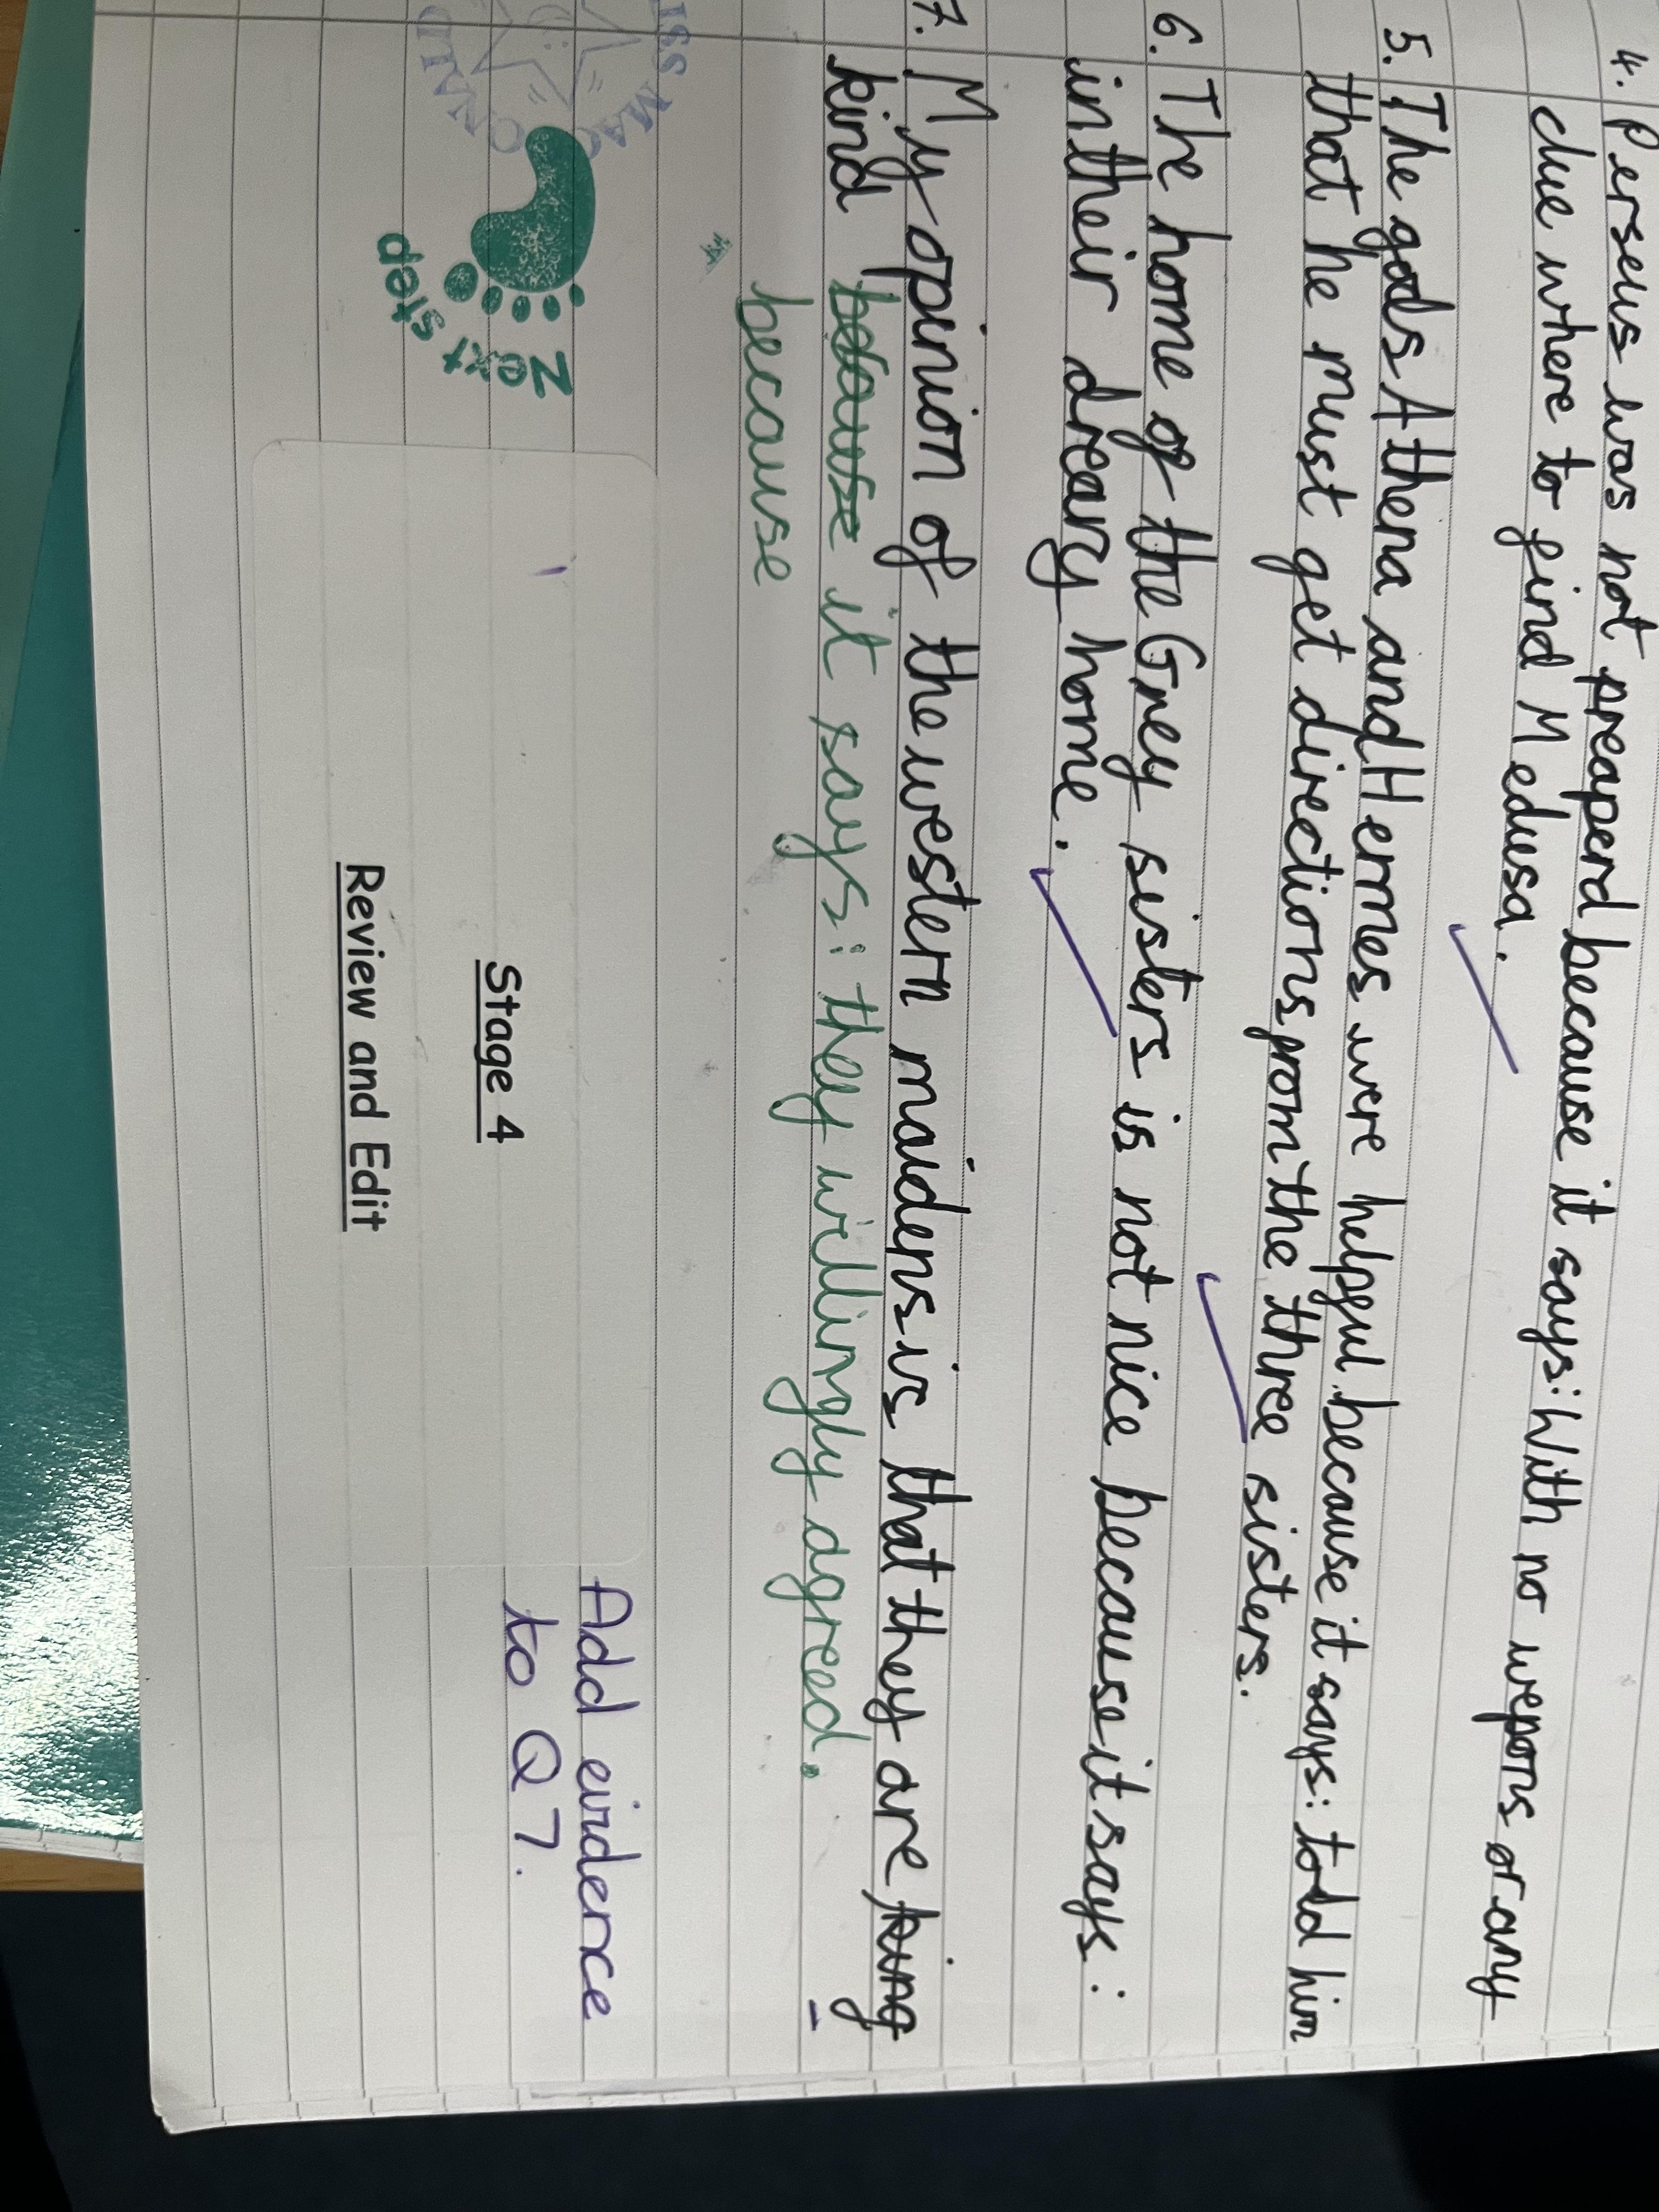 4. Perseus was not preaperd because it says: With no wepons or any
clue where to find Medusa.
5. The gods Athena and Hermes were helpful because it says: told him
that he must get directions from the three sisters.
6. The home of the Grey sisters is not nice because it says:
in their dreary home.
7. My opinion of the western maidens is that they are king
kind because it says: they willingly agreed.
because
Add evidence
to Q7.
Next step
MISS MACDONALD
Stage 4
Review and Edit